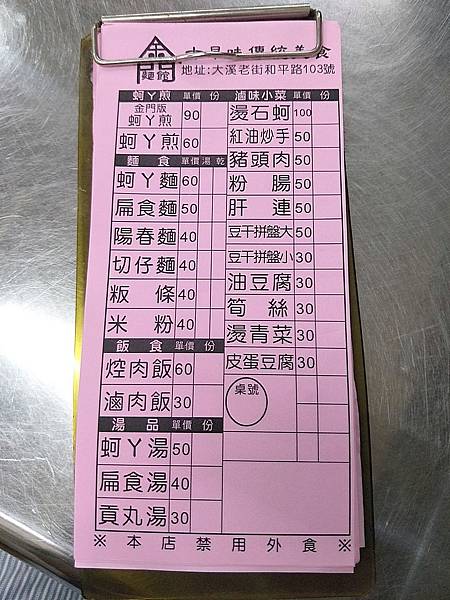 麵館 味傳統美食
地址:大溪老街和平路103號
蚵ㄚ煎 單價 份
金門版
蚵ㄚ煎 90
蚵ㄚ煎 60
麵食 單價 湯 乾
蚵ㄚ麵 60
扁食麵 50
陽春麵 40
切仔麵 40
粄條 40
米粉 40
飯食 單價 份
焢肉飯 60
滷肉飯 30
湯品 單價 份
蚵ㄚ湯 50
扁食湯 40
貢丸湯 30
滷味小菜 單價 份
燙石蚵 100
紅油炒手 50
豬頭肉 50
粉腸 50
肝連 50
豆干拼盤大 50
豆干拼盤小 30
油豆腐 30
筍絲 30
燙青菜 30
皮蛋豆腐 30
桌號
※本店禁用外食※